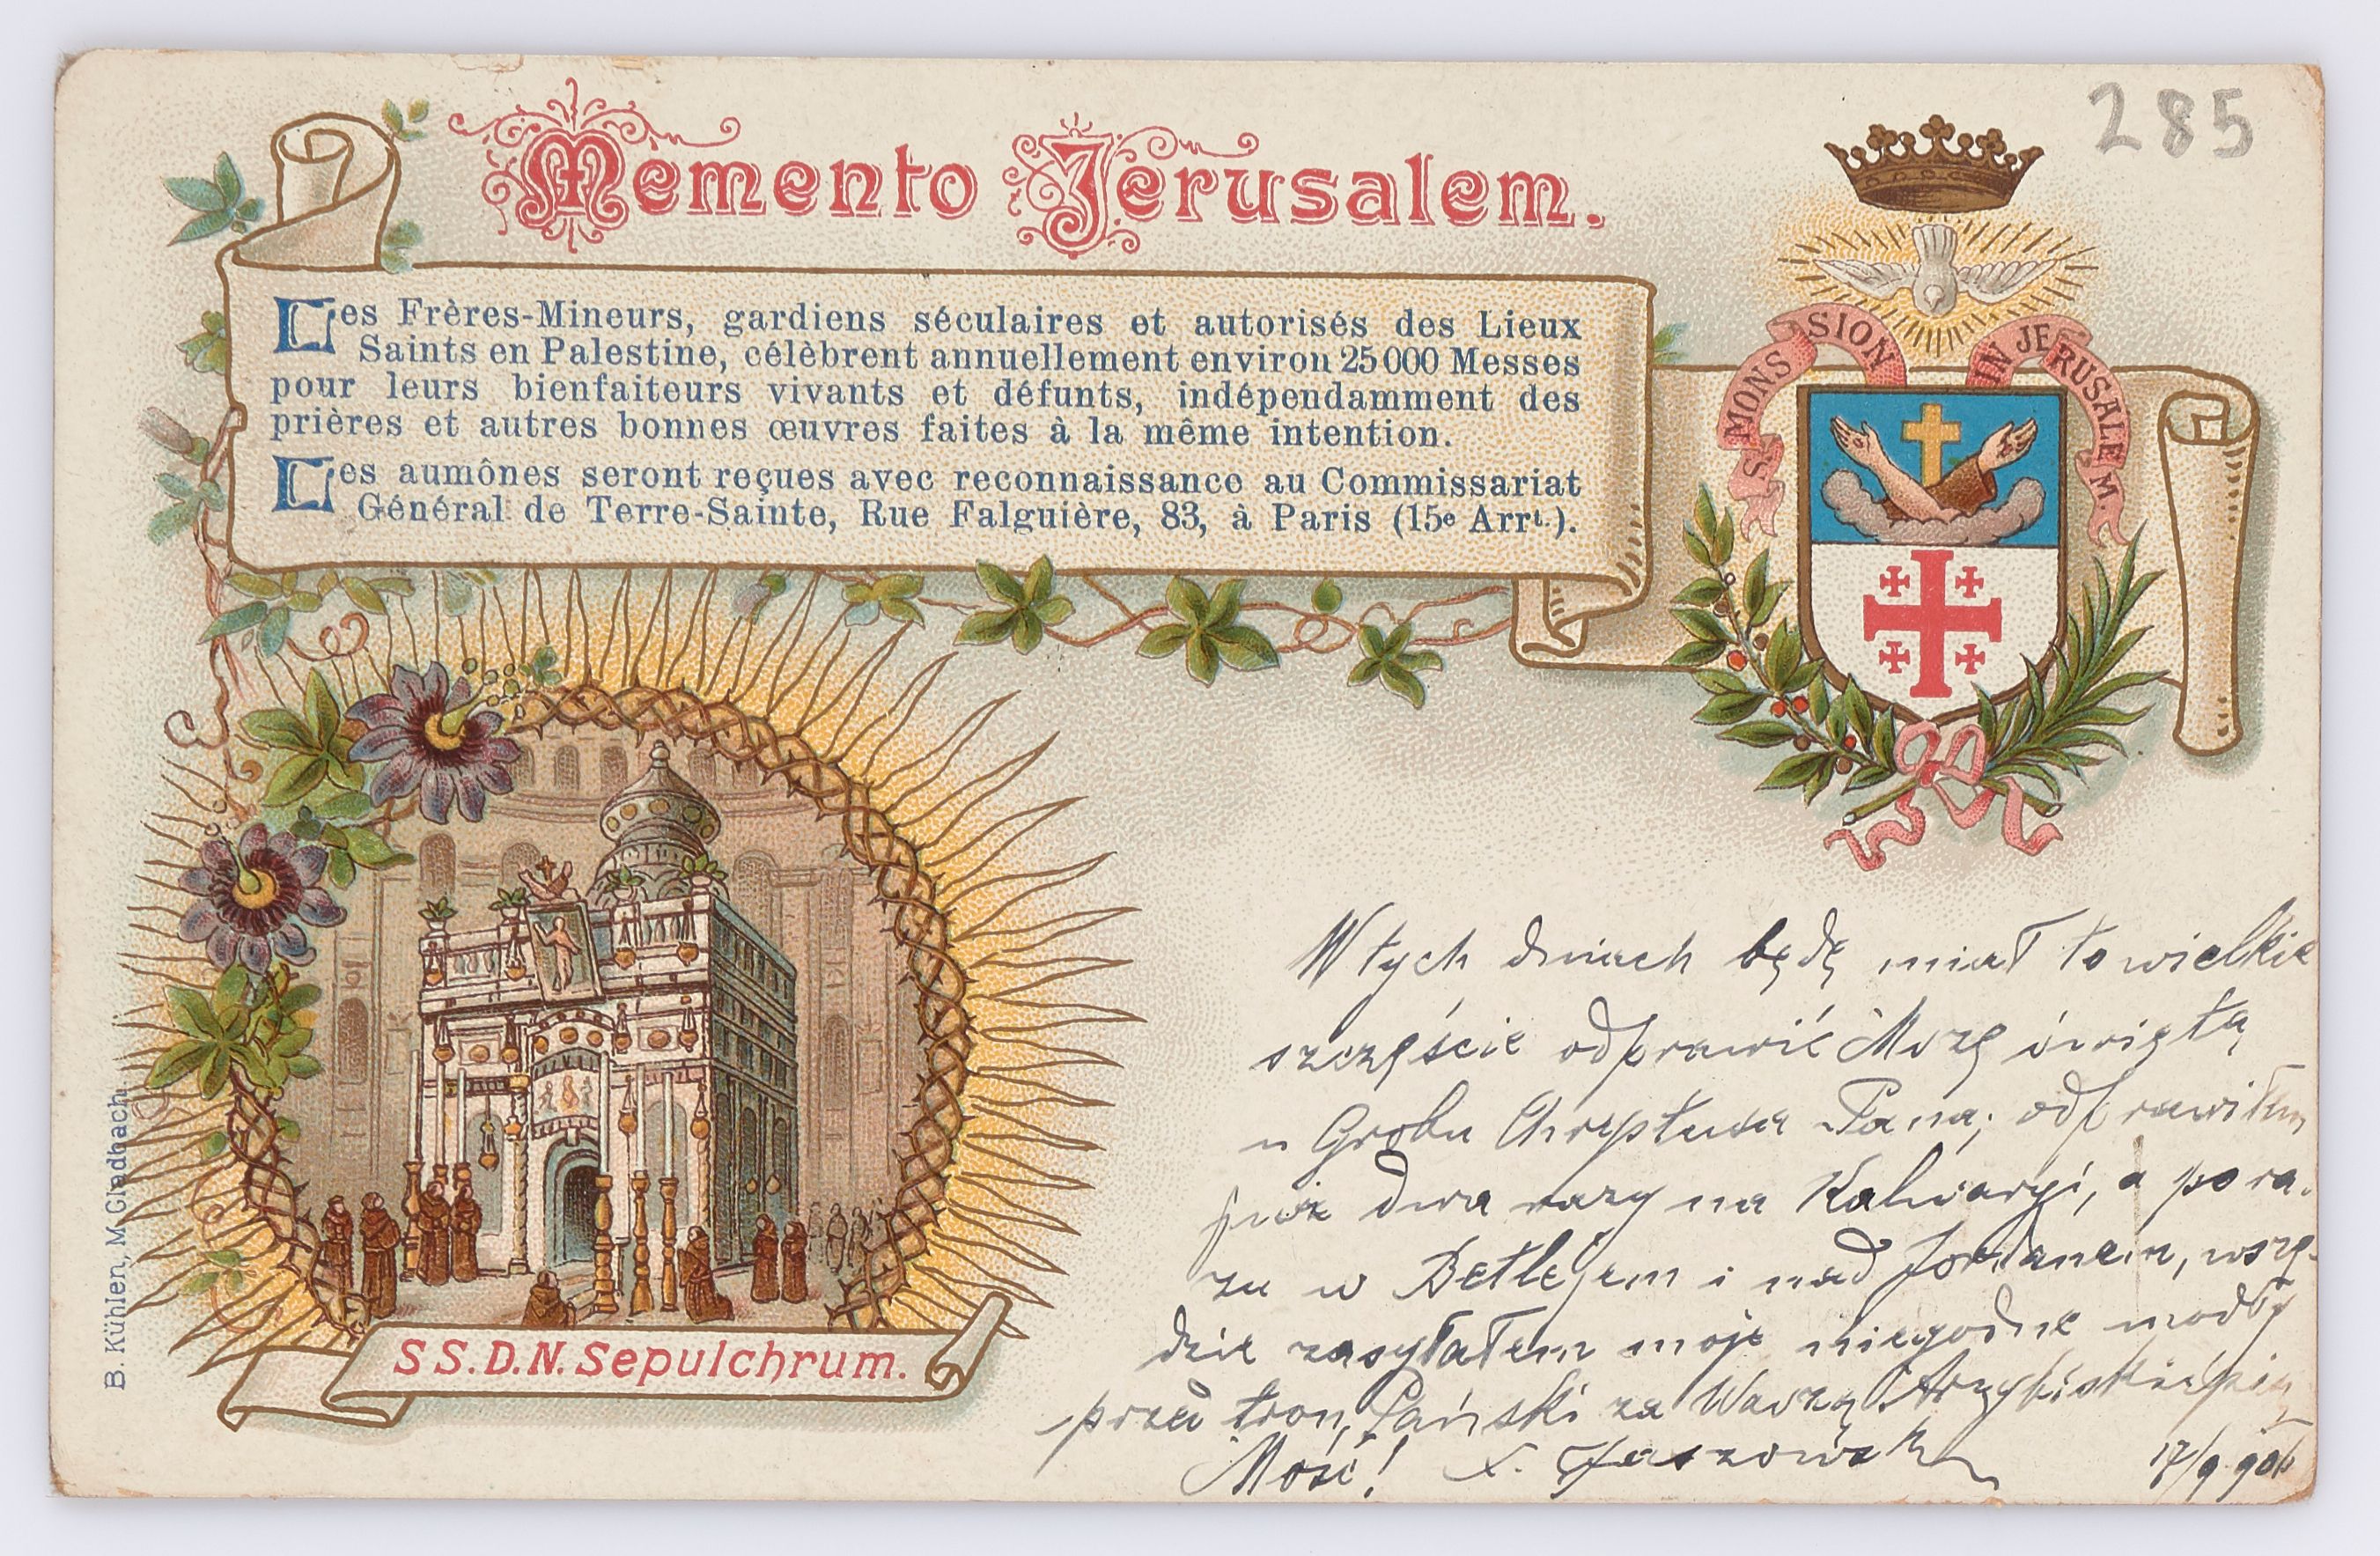 285
Memento Jerusalem.
Les Frères-Mineurs, gardiens séculaires et autorisés des Lieux
Saints en Palestine, célèbrent annuellement environ 25000 Messes
pour leurs bienfaiteurs vivants et défunts, indépendamment des
prières et autres bonnes œuvres faites à la même intention.
Les aumônes seront reçues avec reconnaissance au Commissariat
Général de Terre-Sainte, Rue Falguière, 83, à Paris (15e Arrt.).
S. MONS SION IN JERUSALEM.
W tych dniach będę miał to wielkie
szczęście odprawić Mszę świętą
u Grobu Chrystusa Pana; odprawiłem
już dwa razy na Kalwaryi, a po ra-
zu w Betlejem i nad Jordanem, wszę-
dzie zasyłałem moje niegodne modły
przed tron Pański za Waszą Arzybiskupią
Mość! X.
17/9 90
SS.D.N. Sepulchrum.
B. Kühlen, M. Gladbach.